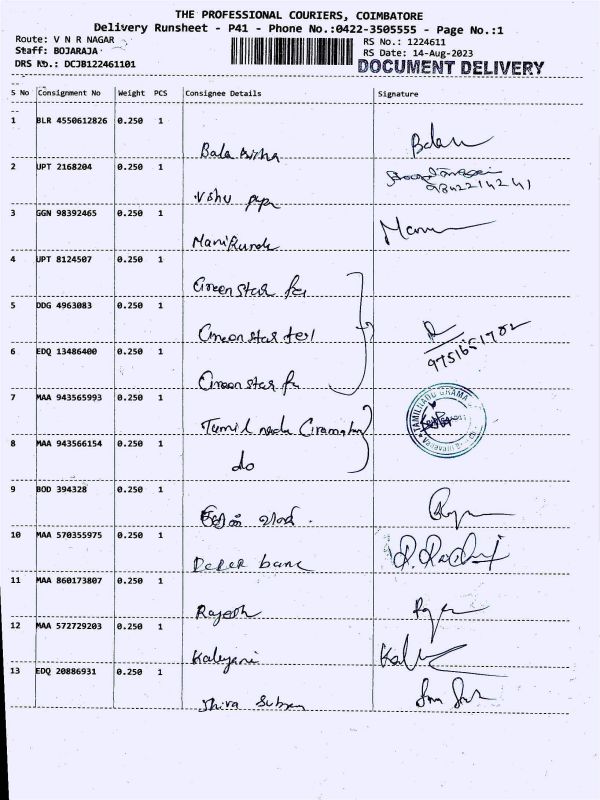 THE PROFESSIONAL COURIERS, COIMBATORE
Delivery Runsheet - P41 - Phone No.:0422-3505555 - Page No.:1
Route: V N R NAGAR
RS No.: 1224611
Staff: BOJARAJA
RS Date: 14-Aug-2023
DRS No.: DCJB122461101
DOCUMENT DELIVERY
S No Consignment No Weight PCS Consignee Details Signature
1 BLR 4550612826 0.250 1
Bala
2 UPT 2168204 0.250 1
Vshu
9842214241
3 GGN 98392465 0.250 1
4 UPT 8124507 0.250 1
Green star
5 DDG 4963083 0.250 1
Green star
9751651702
6 EDQ 13486400 0.250 1
Green star
7 MAA 943565993 0.250 1
TAMILNADU GRAMA
Tamil nadu
8 MAA 943566154 0.250 1
do
9 BOD 394328 0.250 1
10 MAA 570355975 0.250 1
bank
11 MAA 860173807 0.250 1
Rajesh
12 MAA 572729203 0.250 1
Kalyani
13 EDQ 20886931 0.250 1
Shiva